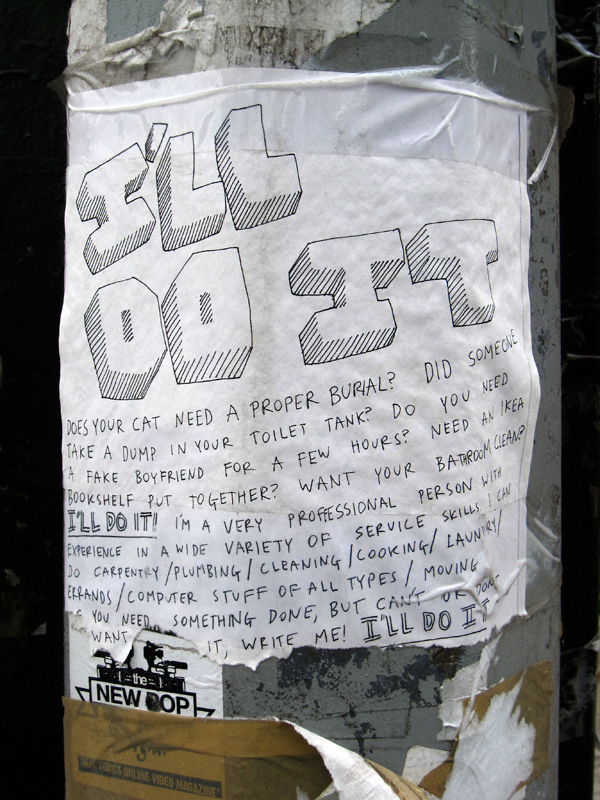 I'LL
DO IT
DOES YOUR CAT NEED A PROPER BURIAL? DID SOMEONE
TAKE A DUMP IN YOUR TOILET TANK? DO YOU NEED
A FAKE BOYFRIEND FOR A FEW HOURS? NEED AN IKEA
BOOKSHELF PUT TOGETHER? WANT YOUR BATHROOM CLEAN?
I'LL DO IT! I'M A VERY PROFFESSIONAL PERSON WITH
EXPERIENCE IN A WIDE VARIETY OF SERVICE SKILLS I CAN
DO CARPENTRY/PLUMBING/CLEANING/COOKING/LAUNDRY/
ERRANDS/COMPUTER STUFF OF ALL TYPES/MOVING
YOU NEED SOMETHING DONE, BUT CAN'T OR DON'T
WANT IT, WRITE ME! I'LL DO IT
the
NEW POP
ONLINE VIDEO MAGAZINE